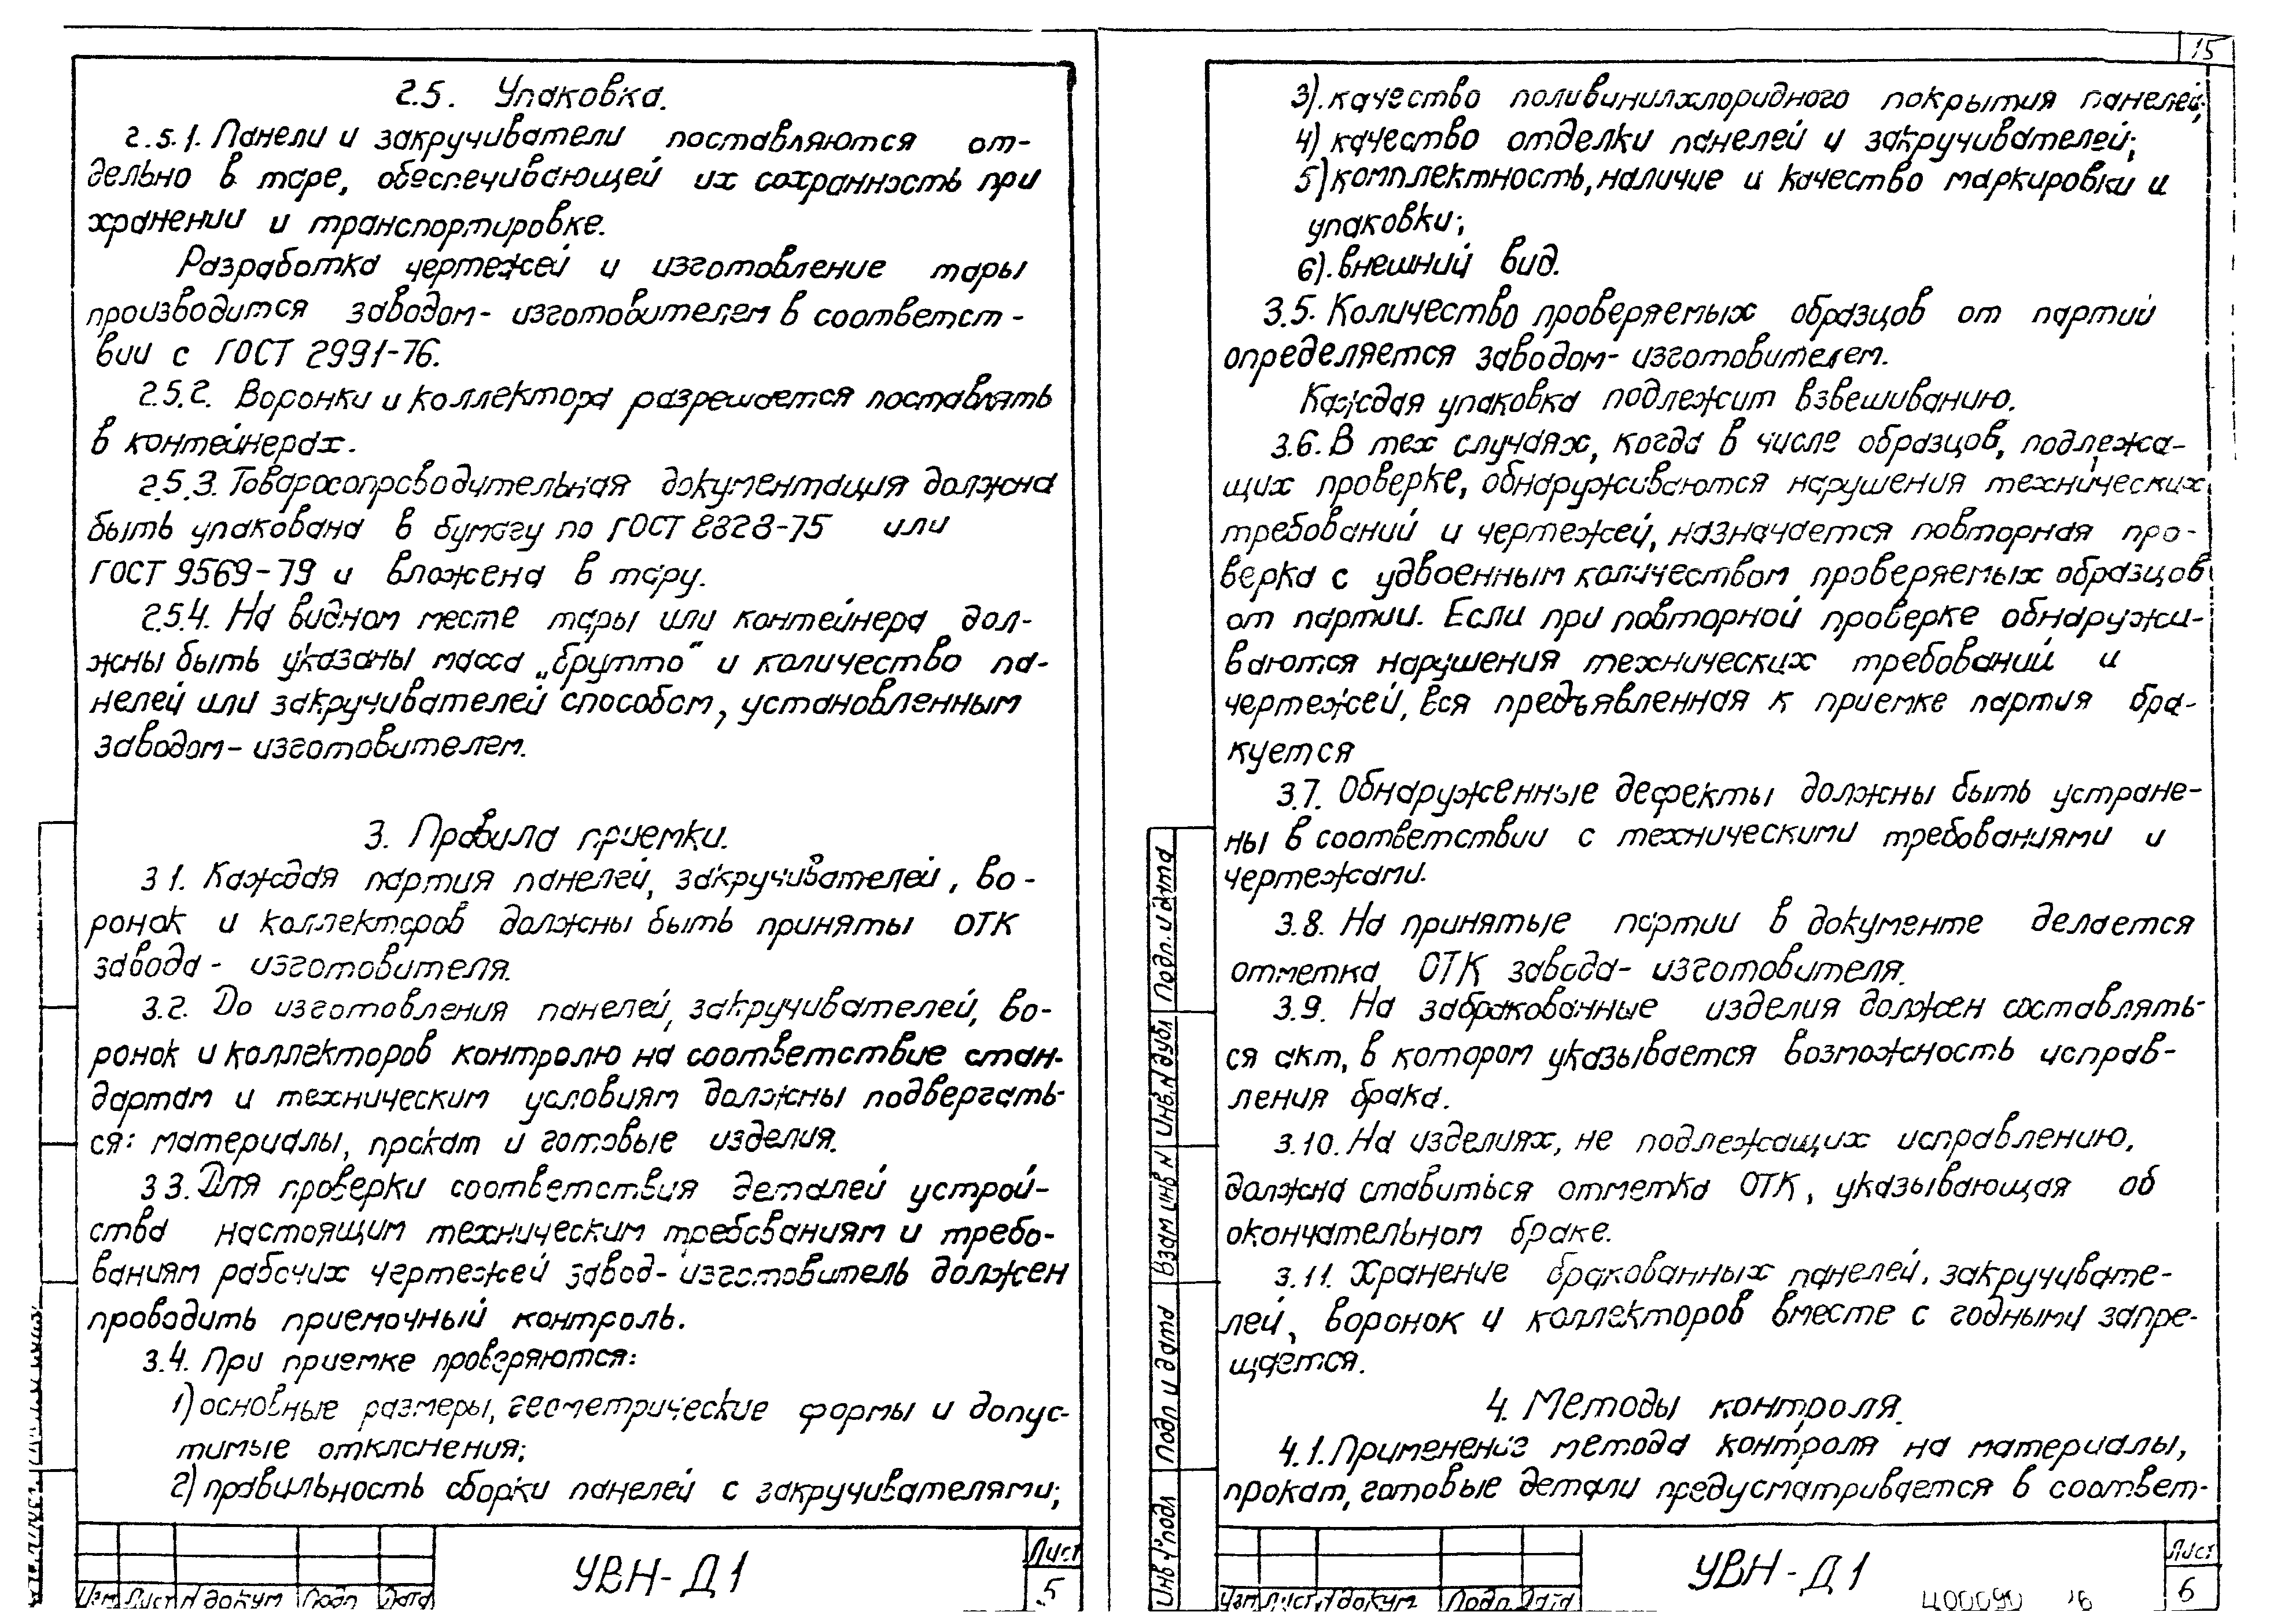 2.5. Упаковка.
2.5.1. Панели и закручиватели поставляются от-
дельно в таре, обеспечивающей их сохранность при
хранении и транспортировке.
Разработка чертежей и изготовление тары
производится заводом- изготовителем в соответст-
вии с ГОСТ 2991-76.
2.5.2. Воронки и коллектора разрешается поставлять
в контейнерах.
2.5.3. Товаросопроводительная документация должна
быть упакована в бумагу по ГОСТ 8828-75 или
ГОСТ 9569-79 и вложена в тару.
2.5.4. На видном месте тары или контейнера дол-
жны быть указаны масса „брутто“ и количество па-
нелей или закручивателей способом, установленным
заводом-изготовителем.
3. Правила приемки.
3 1. Каждая партия панелей, закручивателей, во-
ронок и коллекторов должны быть приняты ОТК
завода- изготовителя.
3.2. До изготовления панелей, закручивателей, во-
ронок и коллекторов контролю на соответствие стан-
дартам и техническим условиям должны подвергать-
ся: материалы, прокат и готовые изделия.
3 3. Для проверки соответствия деталей устрой-
ства настоящим техническим требованиям и требо-
ваниям рабочих чертежей завод-изготовитель должен
проводить приемочный контроль.
3.4. При приемке проверяются:
1) основные размеры, геометрические формы и допус-
тимые отклонения;
2) правильность сборки панелей с закручивателями;
Изм Лист N докум Подп Дата
УВН-Д1
Лист
5
15
3). качество поливинилхлоридного покрытия панелей;
4) качество отделки панелей и закручивателей;
5) комплектность, наличие и качество маркировки и
упаковки;
6). внешний вид.
3.5. Количество проверяемых образцов от партий
определяется заводом- изготовителем.
Каждая упаковка подлежит взвешиванию.
3.6. В тех случаях, когда в числе образцов, подлежа-
щих проверке, обнаруживаются нарушения технических
требований и чертежей, назначается повторная про-
верка с удвоенным количеством проверяемых образцов
от партии. Если при повторной проверке обнаружи-
ваются нарушения технических требований и
чертежей, вся предъявленная к приемке партия бра-
куется
3.7. Обнаруженные дефекты должны быть устране-
ны в соответствии с техническими требованиями и
чертежами.
3.8. На принятые партии в документе делается
отметка ОТК завода- изготовителя.
3.9. На забракованные изделия должен составлять-
ся акт, в котором указывается возможность исправ-
ления брака.
3.10. На изделиях, не подлежащих исправлению,
должна ставиться отметка ОТК, указывающая об
окончательном браке.
3.11. Хранение бракованных панелей, закручивате-
лей, воронок и коллекторов вместе с годными запре-
щается.
4. Методы контроля.
4.1. Применение метода контроля на материалы,
прокат, готовые детали предусматривается в соответ-
Подп. и дата
Инв.N дубл
Взам инв N
Подп и дата
Инв N подл
Изм Лист N докум Подп Дата
УВН-Д1
Лист
6
Ц00090 16